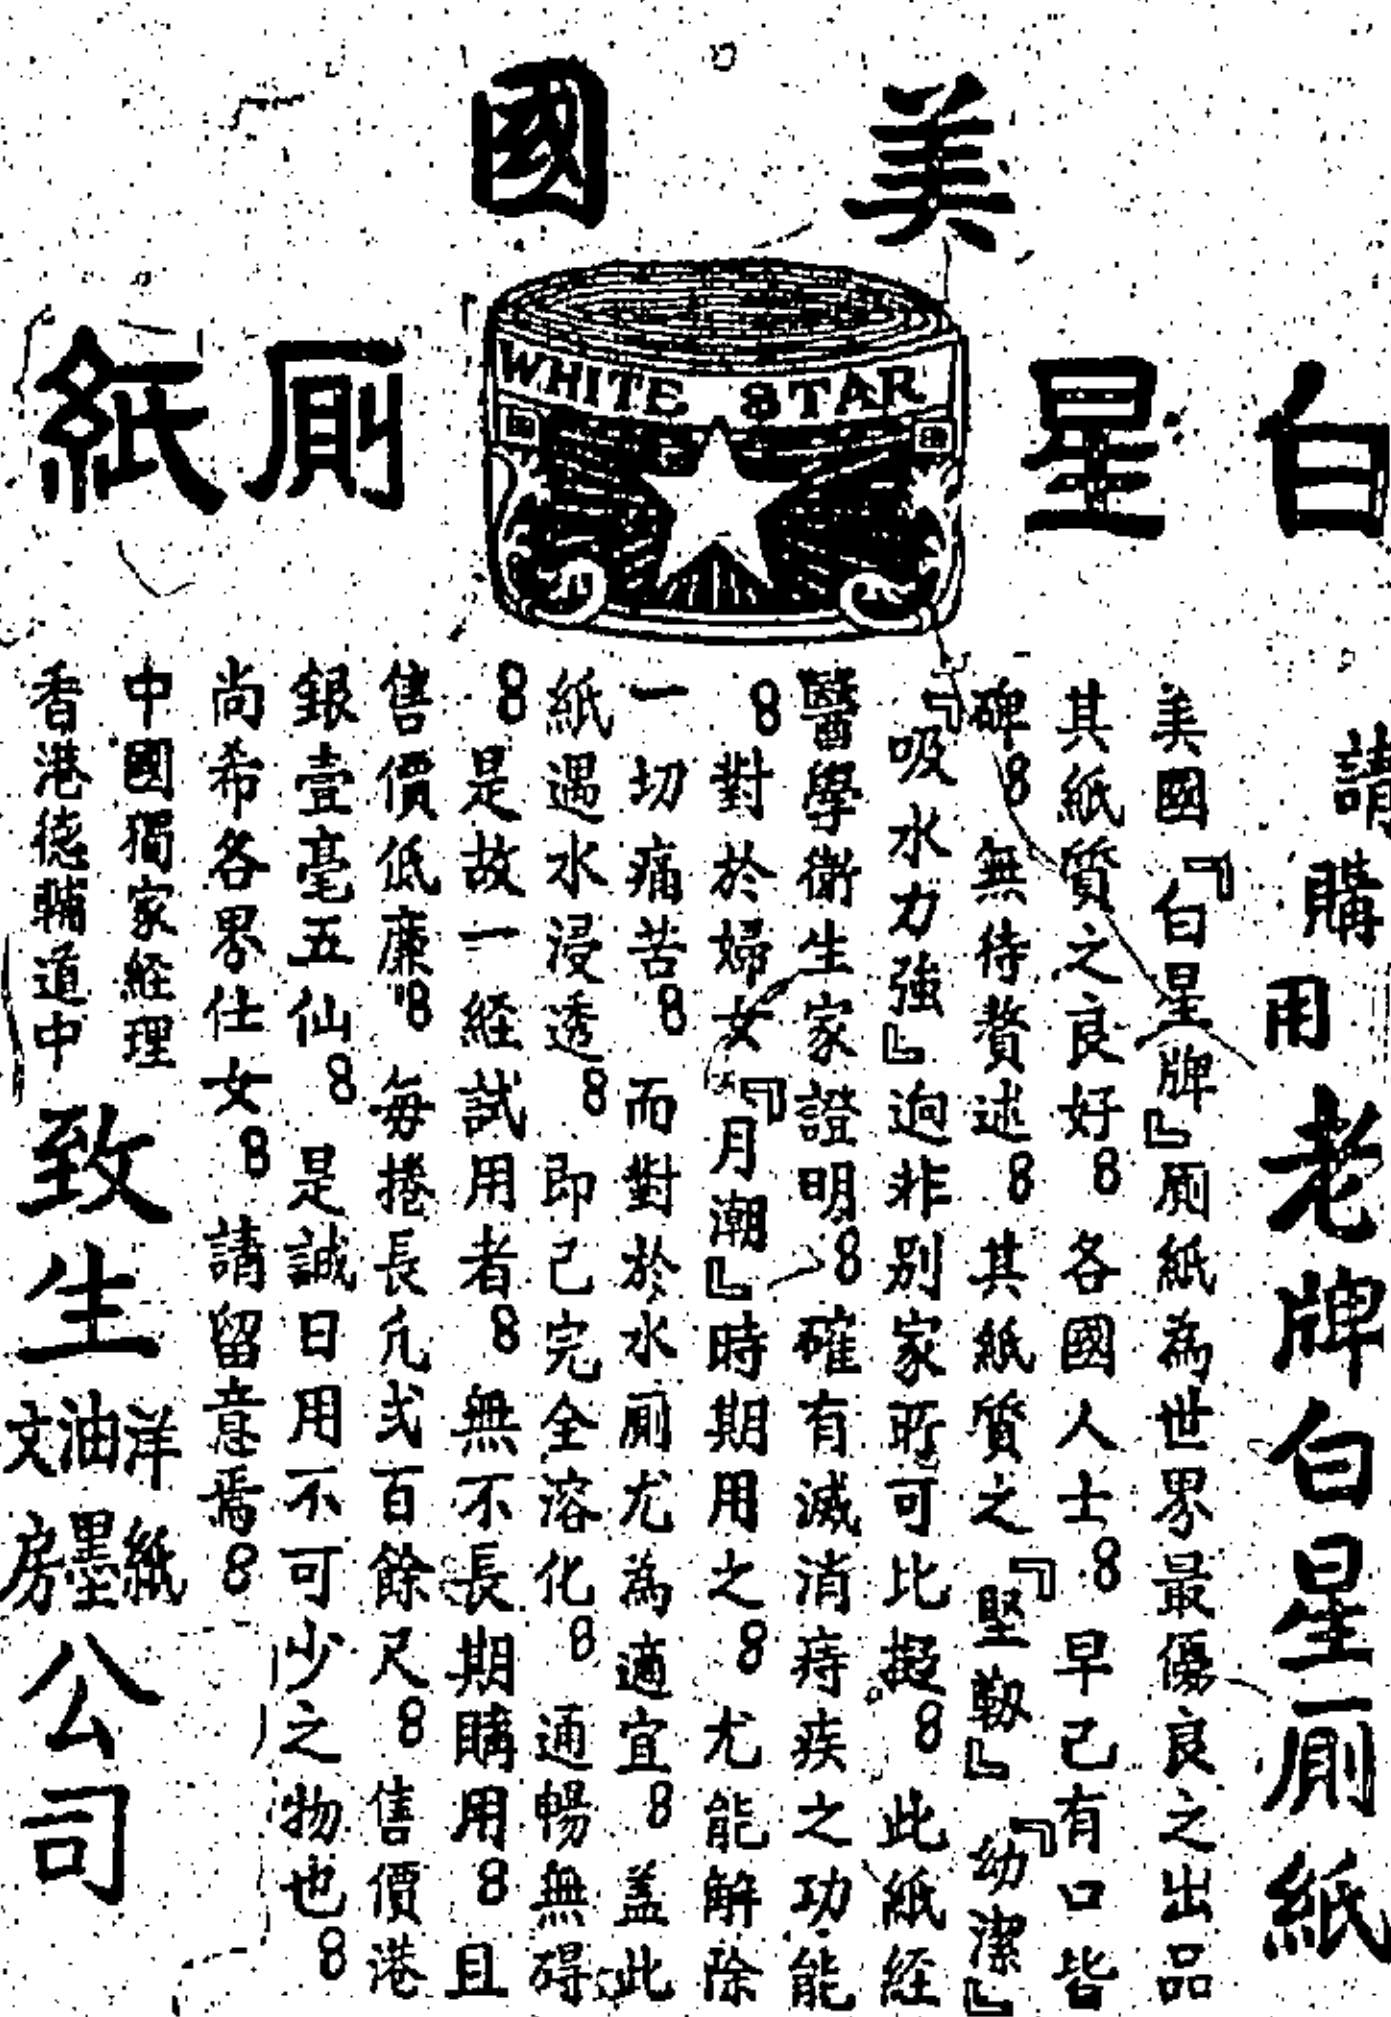 美國
白星廁紙
WHITE STAR
請購用老牌白星廁紙
美國『白星牌』廁紙為世界最優良之出品
其紙質之良好8各國人士8早己有口皆
碑8無待贅述8其紙質之『堅韌』『幼潔』
『吸水力強』逈非別家所可比擬8此紙經
醫學衛生家證明8確有滅消痔疾之功能
8對於婦女『月潮』時期用之8尤能解除
一切痛苦8而對於水廁尤為適宜8盖此
紙遇水浸透8即己完全溶化8通暢無碍
8是故一経試用者8無不長期購用8且
售價低廉8每捲長凢弍百餘尺8售價港
銀壹毫五仙8是誠日用不可少之物也8
尚希各界仕女8請留意焉8
中國獨家経理
香港德輔道中
致生
洋紙
油墨
文房
公司